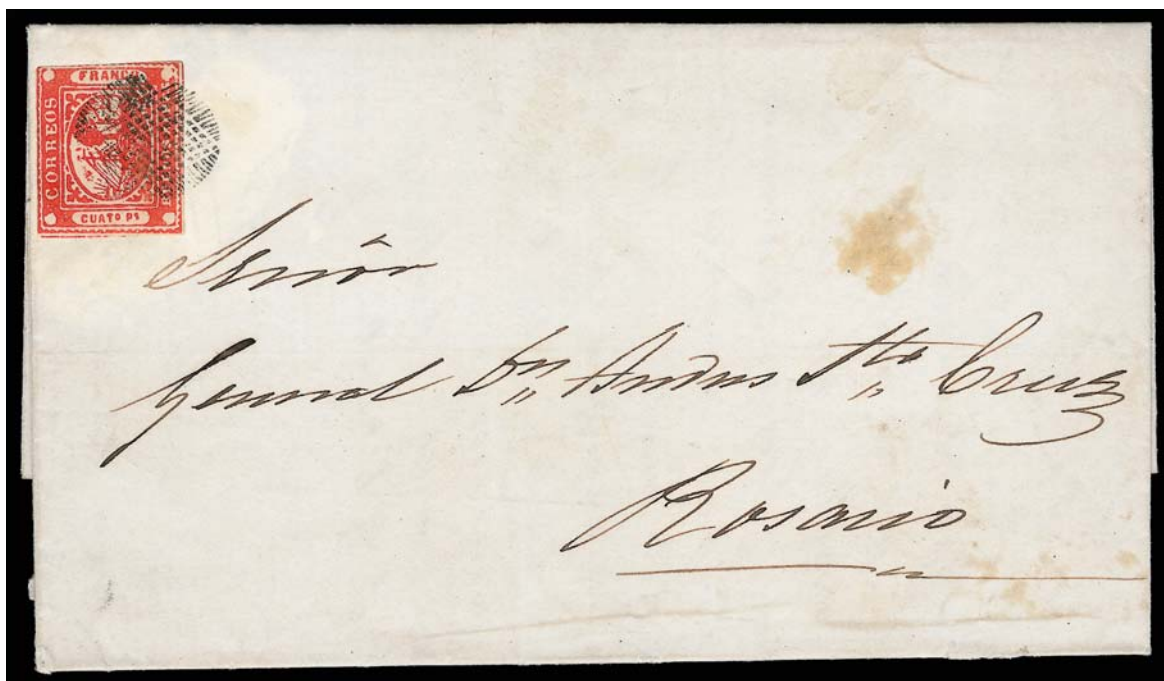 FRANCO
CORREOS
CUATO PS
Señor
General Dn Andres Sta Cruz
Rosario